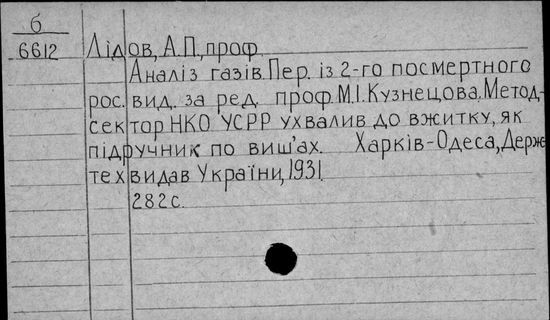 б
6612 Лідов, А.П., проф
Аналіз газів. Пер. із 2-го посмертного
рос. вид. за ред. проф. М.І. Кузнецова. Метод-
сектор НКО УСРР ухвалив до вжитку, як
підручник по виш'ах. Харків-Одеса, Держ
техвидав України, 1931.
282 с.